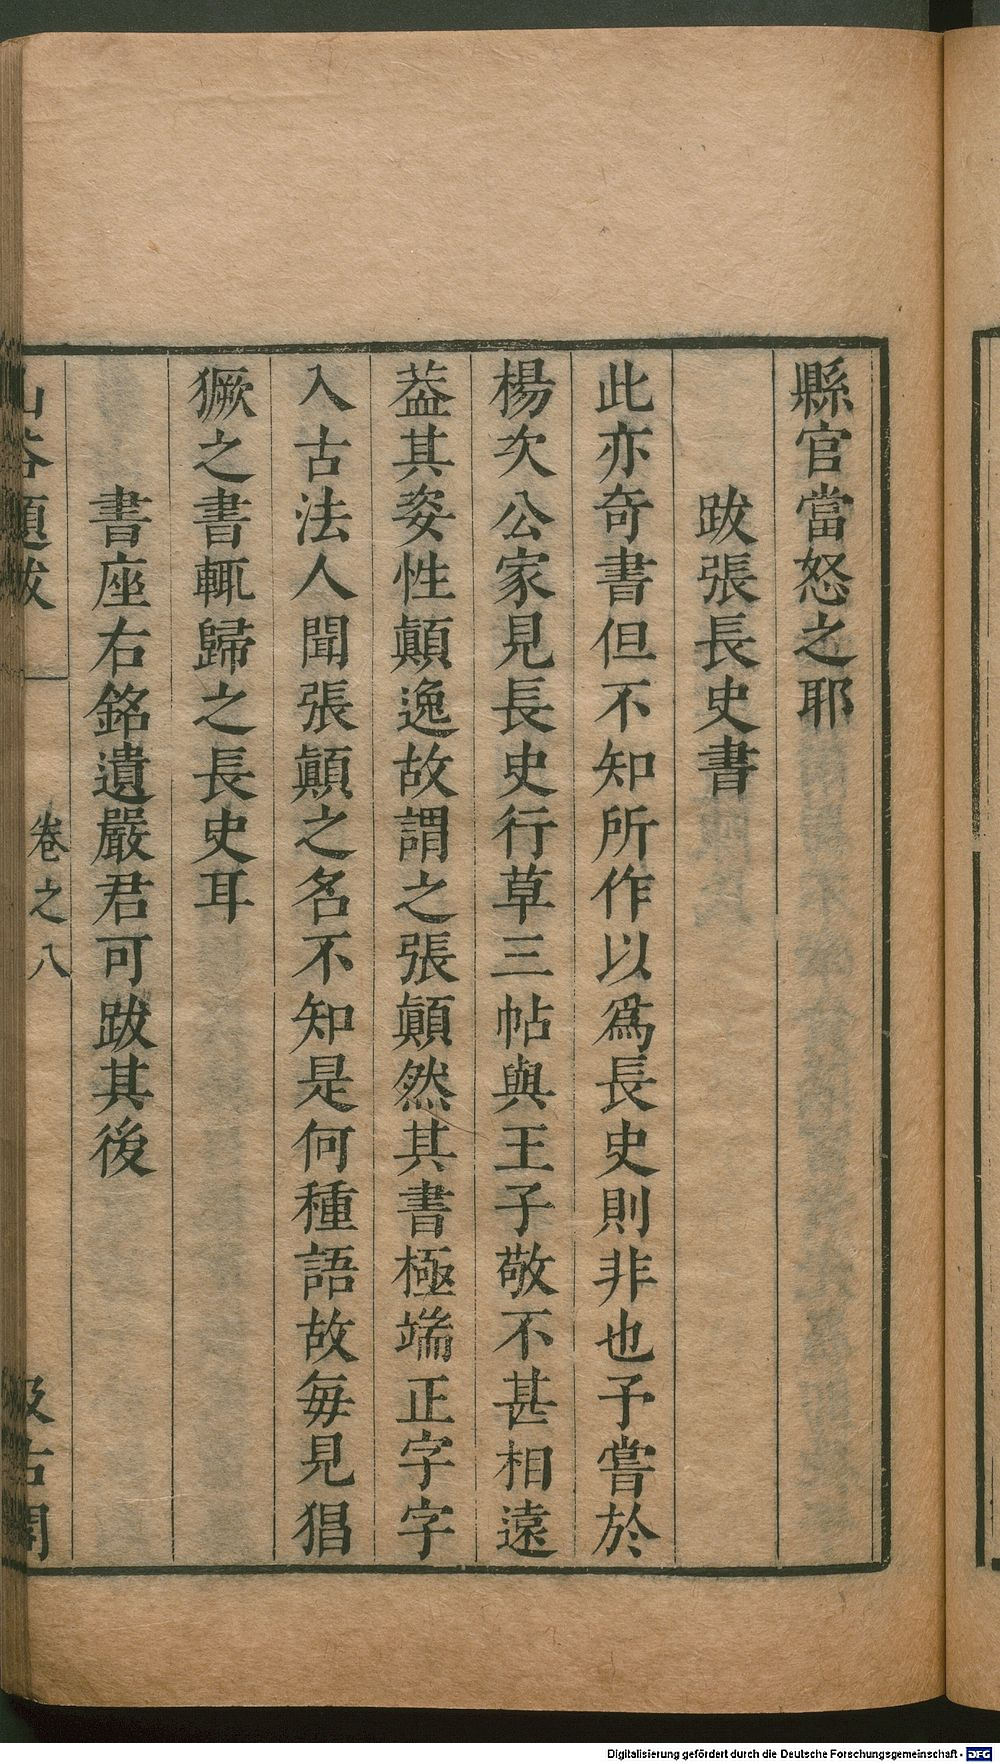 縣官當怒之耶
跋張長史書
此亦奇書但不知所作以爲長史則非也予嘗於
楊次公家見長史行草三帖與王子敬不甚相遠
葢其姿性顚逸故謂之張顚然其書極端正字字
入古法人聞張顚之名不知是何種語故每見猖
獗之書輒歸之長史耳
書座右銘遺嚴君可跋其後
山谷題跋 卷之八 汲古閣
Digitalisierung gefördert durch die Deutsche Forschungsgemeinschaft - DFG